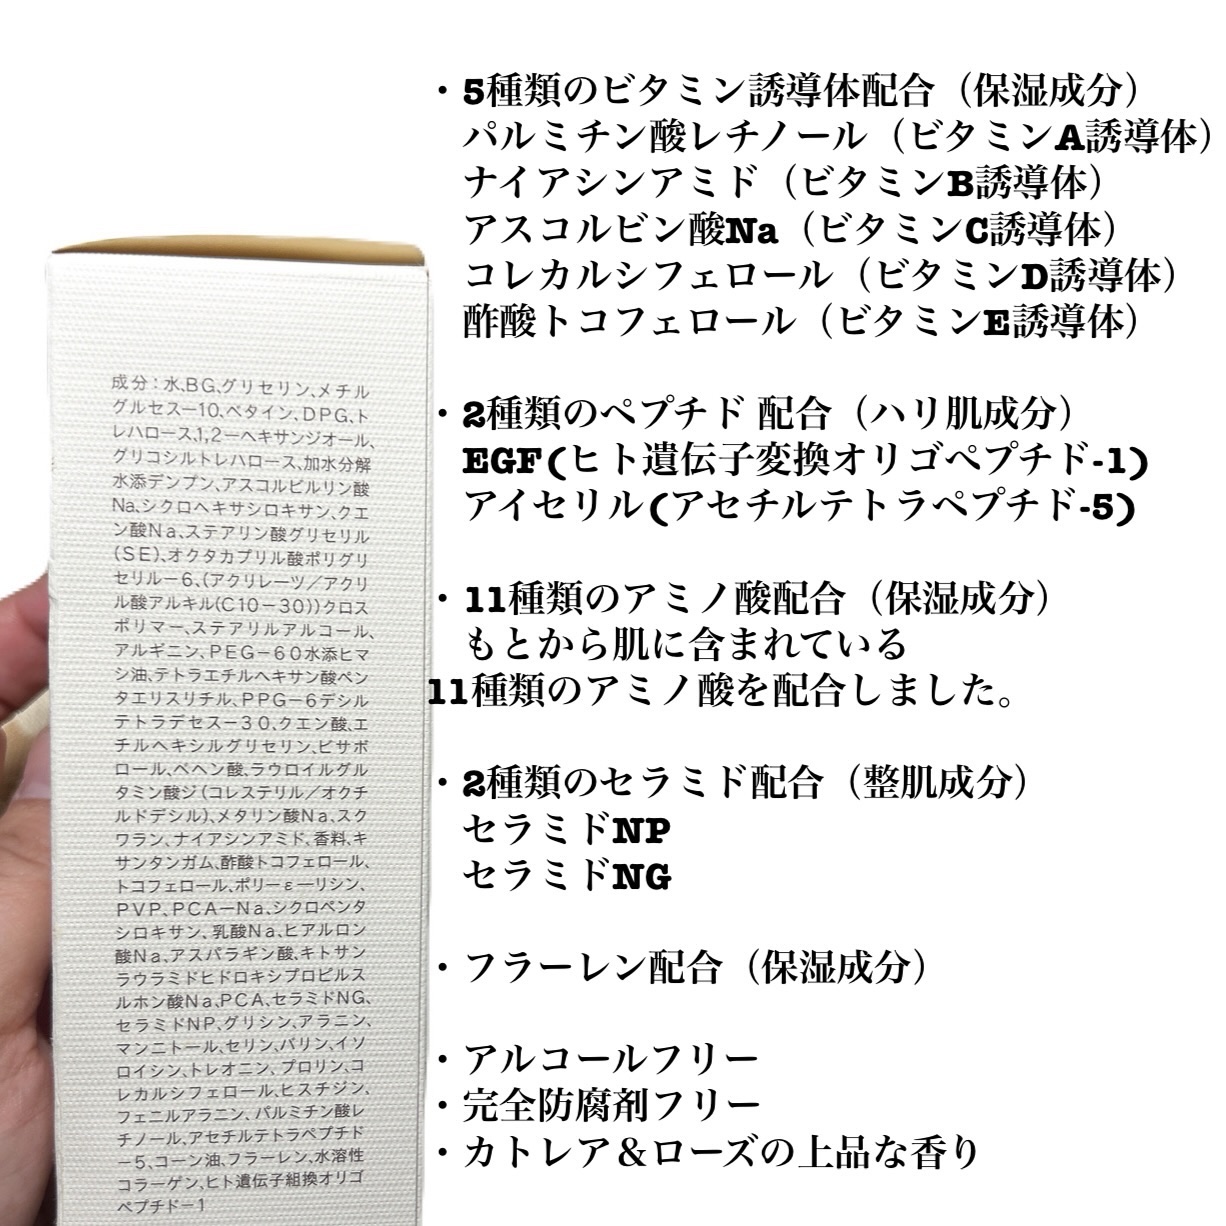 ・5種類のビタミン誘導体配合（保湿成分）
パルミチン酸レチノール（ビタミンA誘導体）
ナイアシンアミド（ビタミンB誘導体）
アスコルビン酸Na（ビタミンC誘導体）
コレカルシフェロール（ビタミンD誘導体）
酢酸トコフェロール（ビタミンE誘導体）
・2種類のペプチド 配合（ハリ肌成分）
EGF(ヒト遺伝子変換オリゴペプチド-1)
アイセリル(アセチルテトラペプチド-5)
・11種類のアミノ酸配合（保湿成分）
もとから肌に含まれている
11種類のアミノ酸を配合しました。
・2種類のセラミド配合（整肌成分）
セラミドNP
セラミドNG
・フラーレン配合（保湿成分）
・アルコールフリー
・完全防腐剤フリー
・カトレア＆ローズの上品な香り
成分：水、BG、グリセリン、メチル
グルセス－10、ベタイン、DPG、ト
レハロース、1,2－ヘキサンジオール、
グリコシルトレハロース、加水分解
水添デンプン、アスコルビルリン酸
Na、シクロヘキサシロキサン、クエ
ン酸Na、ステアリン酸グリセリル
（SE）、オクタカプリル酸ポリグリ
セリル－6、（アクリレーツ／アクリ
ル酸アルキル(C10－30)）クロス
ポリマー、ステアリルアルコール、
アルギニン、PEG－60水添ヒマ
シ油、テトラエチルヘキサン酸ペン
タエリスリチル、PPG－6デシル
テトラデセス－30、クエン酸、エ
チルヘキシルグリセリン、ビサボ
ロール、ベヘン酸、ラウロイルグル
タミン酸ジ（コレステリル／オクチ
ルドデシル）、メタリン酸Na、スク
ワラン、ナイアシンアミド、香料、キ
サンタンガム、酢酸トコフェロール、
トコフェロール、ポリ－ε－リシン、
PVP、PCA－Na、シクロペンタ
シロキサン、乳酸Na、ヒアルロン
酸Na、アスパラギン酸、キトサン
ラウラミドヒドロキシプロピルス
ルホン酸Na、PCA、セラミドNG、
セラミドNP、グリシン、アラニン、
マンニトール、セリン、バリン、イソ
ロイシン、トレオニン、プロリン、コ
レカルシフェロール、ヒスチジン、
フェニルアラニン、パルミチン酸レ
チノール、アセチルテトラペプチド
－5、コーン油、フラーレン、水溶性
コラーゲン、ヒト遺伝子組換オリゴ
ペプチド－1